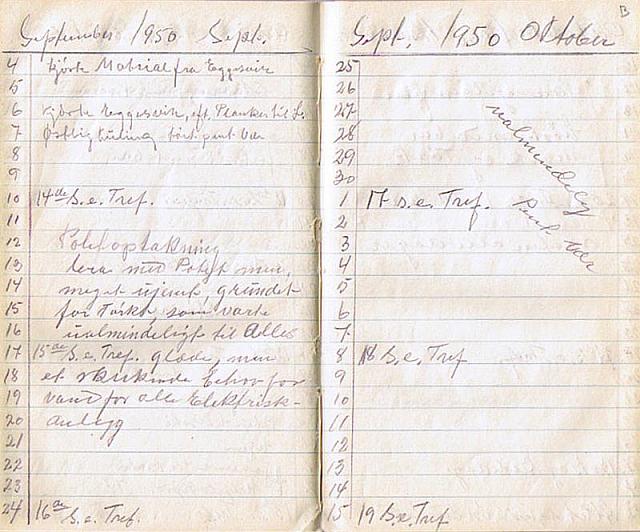 September 1950 Sept.
4 Kjörte Matrial fra Eggesvik
5
6 Kjörte Eggesvik, eft. Planker til S.
7 Østlig kuling tört pent Vær
8
9
10 14de S. e. Tref.
11
12 Potetoptakning
13 bra med Potet men,
14 meget ujevnt, grundet
15 for Törke, som varte
16 ualmindeligt til Alles
17 15de S. e. Tref. glæde, men
18 et skrikende Behov for
19 vand for alle Elektrisk-
20 anlegg
21
22
23
24 16de S. e. Tref.
B
Sept. 1950 Oktober
25
26
27 ualmindelig
28
29
30
1 17 S. e. Tref. Pent Vær
2
3
4
5
6
7
8 18 S. e. Tref
9
10
11
12
13
14
15 19 S. e. Tref